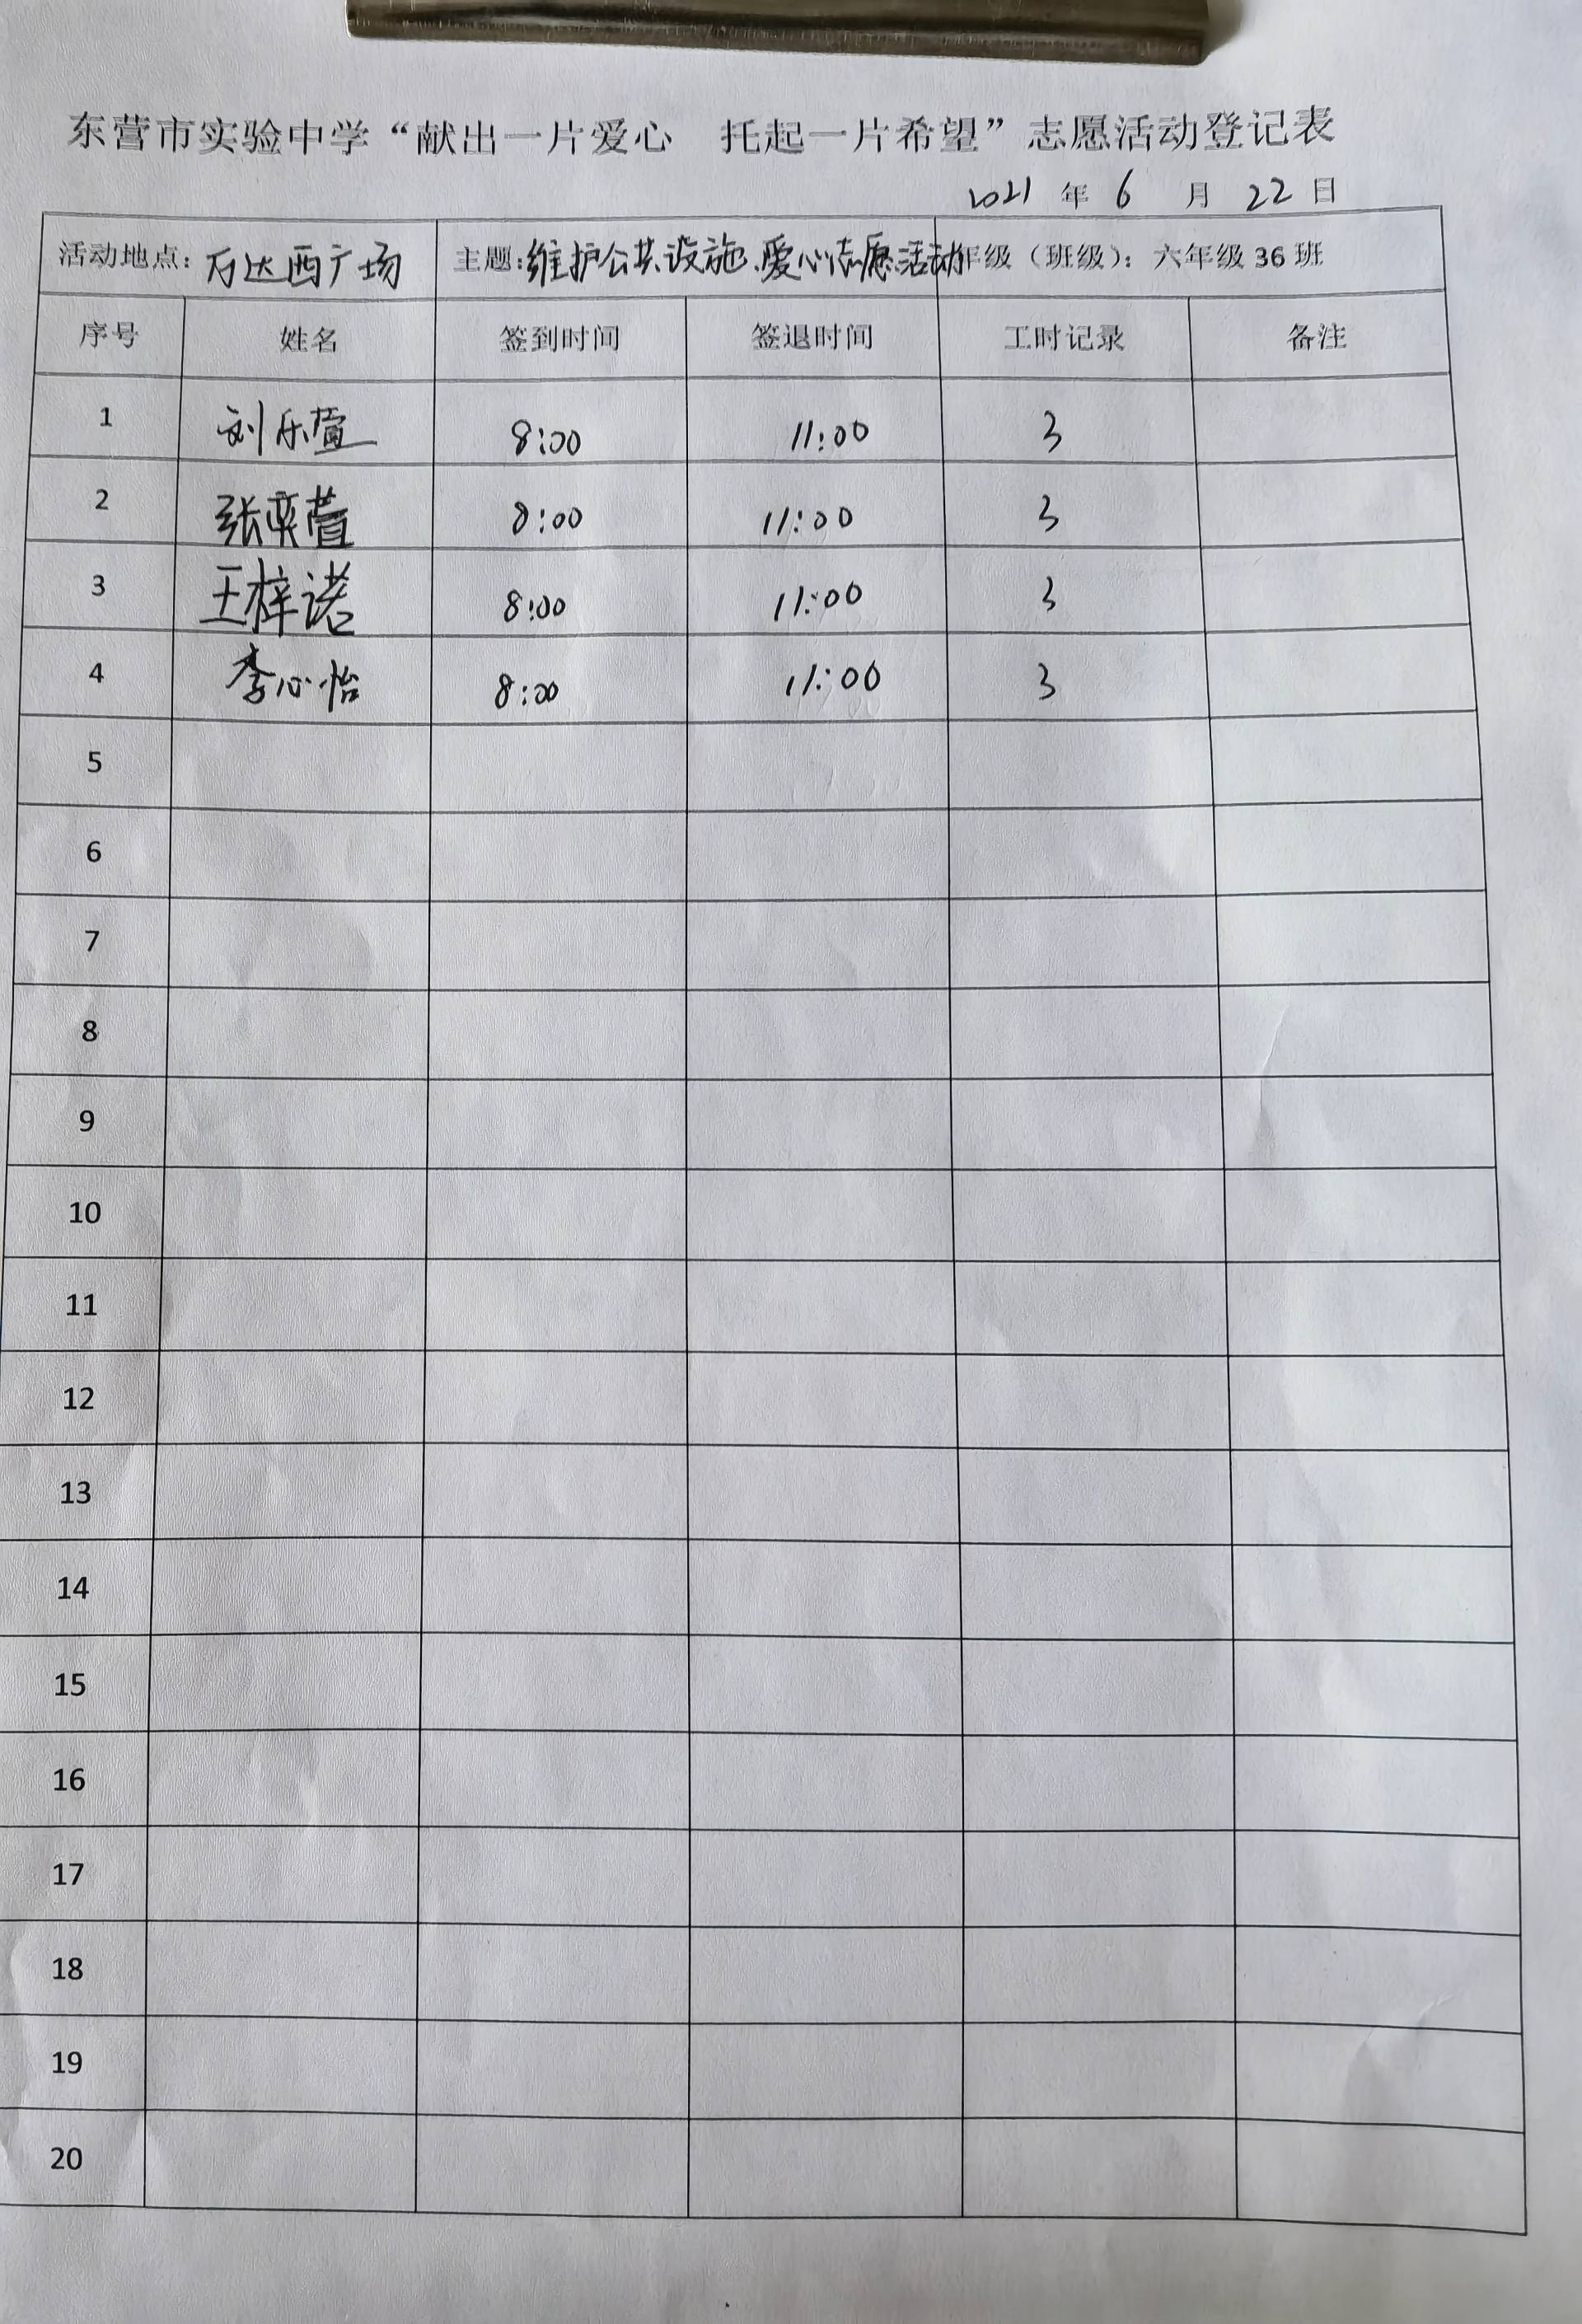 东营市实验中学“献出一片爱心 托起一片希望”志愿活动登记表
2021 年 6 月 22 日
活动地点：万达西广场 主题：维护公共设施、爱心志愿活动 年级（班级）：六年级 36 班
序号 姓名 签到时间 签退时间 工时记录 备注
1 刘乐萱 8:00 11:00 3
2 张奕萱 8:00 11:00 3
3 王梓诺 8:00 11:00 3
4 李心怡 8:00 11:00 3
5
6
7
8
9
10
11
12
13
14
15
16
17
18
19
20